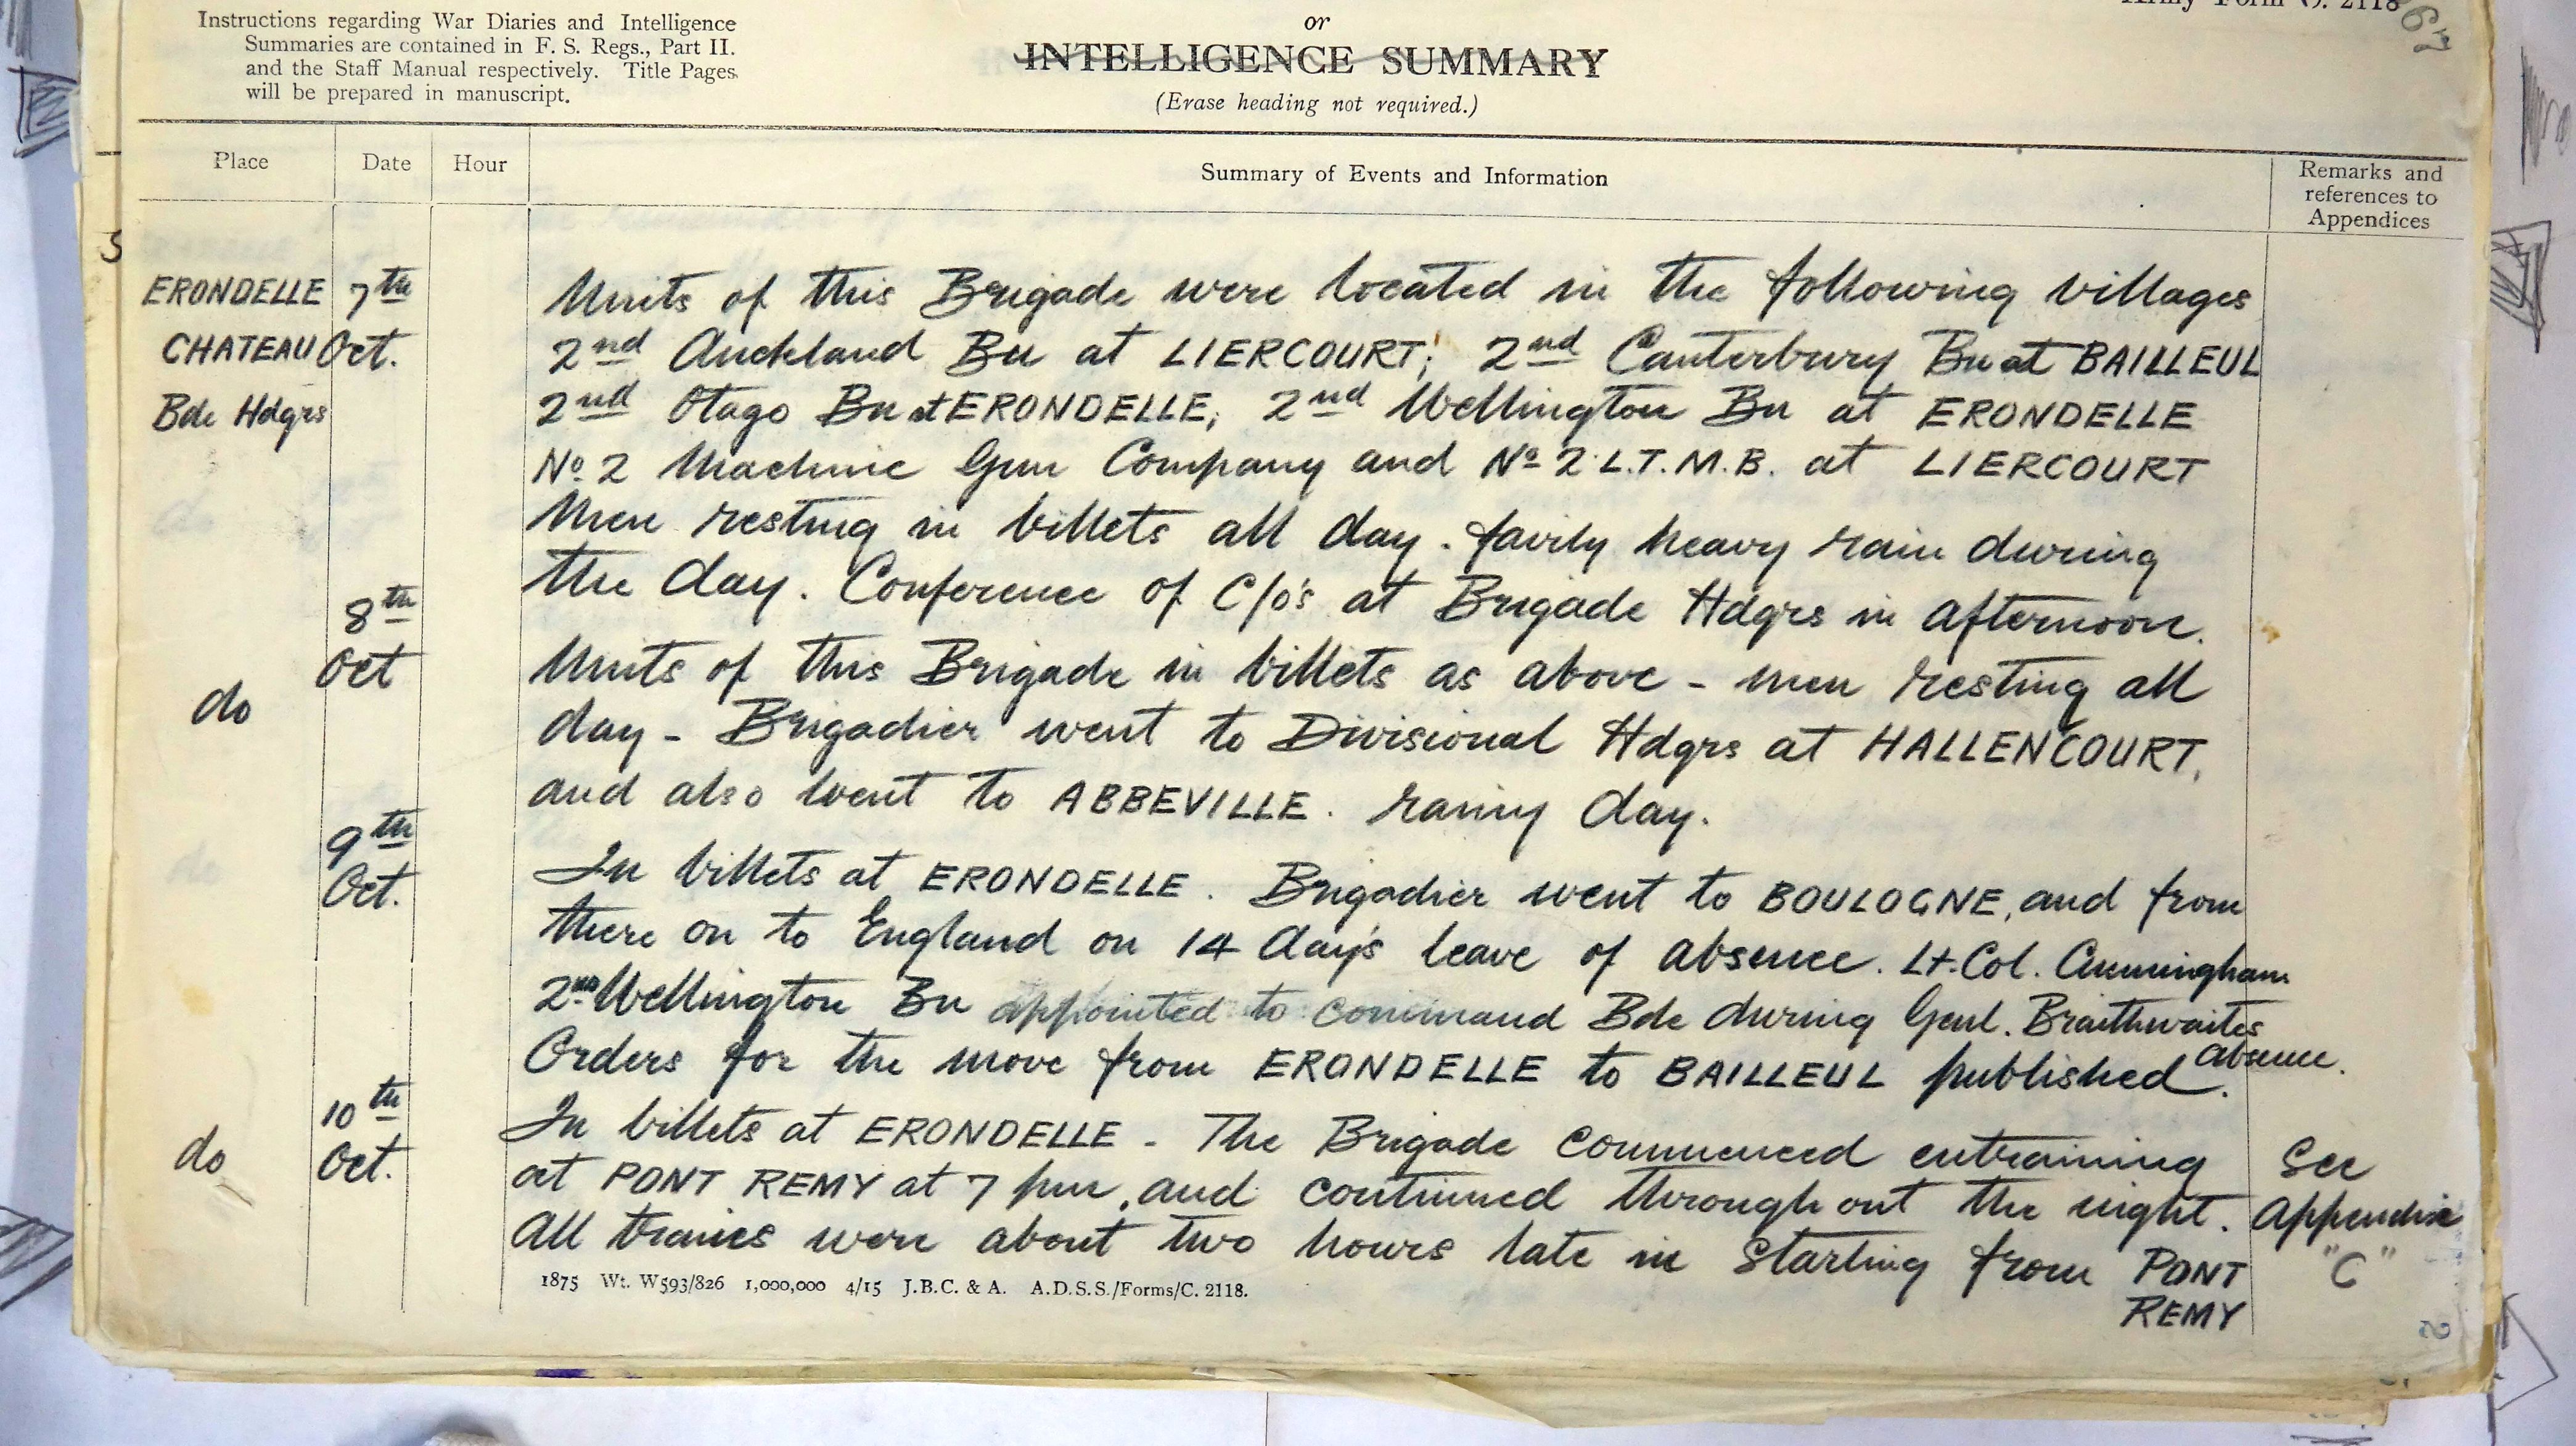 Instructions regarding War Diaries and Intelligence
Summaries are contained in F. S. Regs., Part II.
and the Staff Manual respectively. Title Pages
will be prepared in manuscript.
or
INTELLIGENCE SUMMARY
(Erase heading not required.)
Army Form C. 2118
67
Place
Date
Hour
Summary of Events and Information
Remarks and
references to
Appendices
ERONDELLE
CHATEAU
Bde Hdqrs
7th
Oct.
Units of this Brigade were located in the following villages
2nd Auckland Bn at LIERCOURT; 2nd Canterbury Bn at BAILLEUL
2nd Otago Bn at ERONDELLE; 2nd Wellington Bn at ERONDELLE
No 2 Machine Gun Company and No 2 L.T.M.B. at LIERCOURT
Men resting in billets all day. fairly heavy rain during
the day. Conference of C/o's at Brigade Hdqrs in afternoon.
do
8th
Oct
Units of this Brigade in billets as above - men resting all
day - Brigadier went to Divisional Hdqrs at HALLENCOURT,
and also went to ABBEVILLE. rainy day.
9th
Oct.
In billets at ERONDELLE. Brigadier went to BOULOGNE, and from
there on to England on 14 day's leave of absence. Lt. Col. Cunningham
2nd Wellington Bn appointed to command Bde during Genl. Braithwaites
absence.
Orders for the move from ERONDELLE to BAILLEUL published.
do
10th
Oct.
In billets at ERONDELLE - The Brigade commenced entraining
at PONT REMY at 7 pm, and continued throughout the night.
All trains were about two hours late in starting from PONT
REMY
See
Appendix
"C"
1875 Wt. W593/826 1,000,000 4/15 J.B.C. & A. A.D.S.S./Forms/C. 2118.